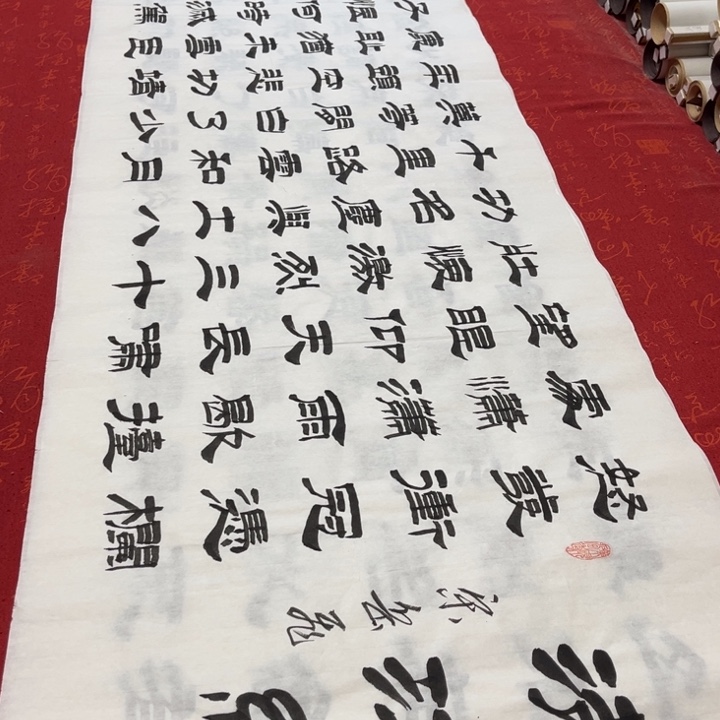 宋岳飛
怒髮衝冠憑欄
處瀟瀟雨歇擡
望眼仰天長嘯
壯懷激烈三十
功名塵與土八
千里路雲和月
莫等閒白了少
年頭空悲切靖
康恥猶未雪臣
子恨何時滅駕